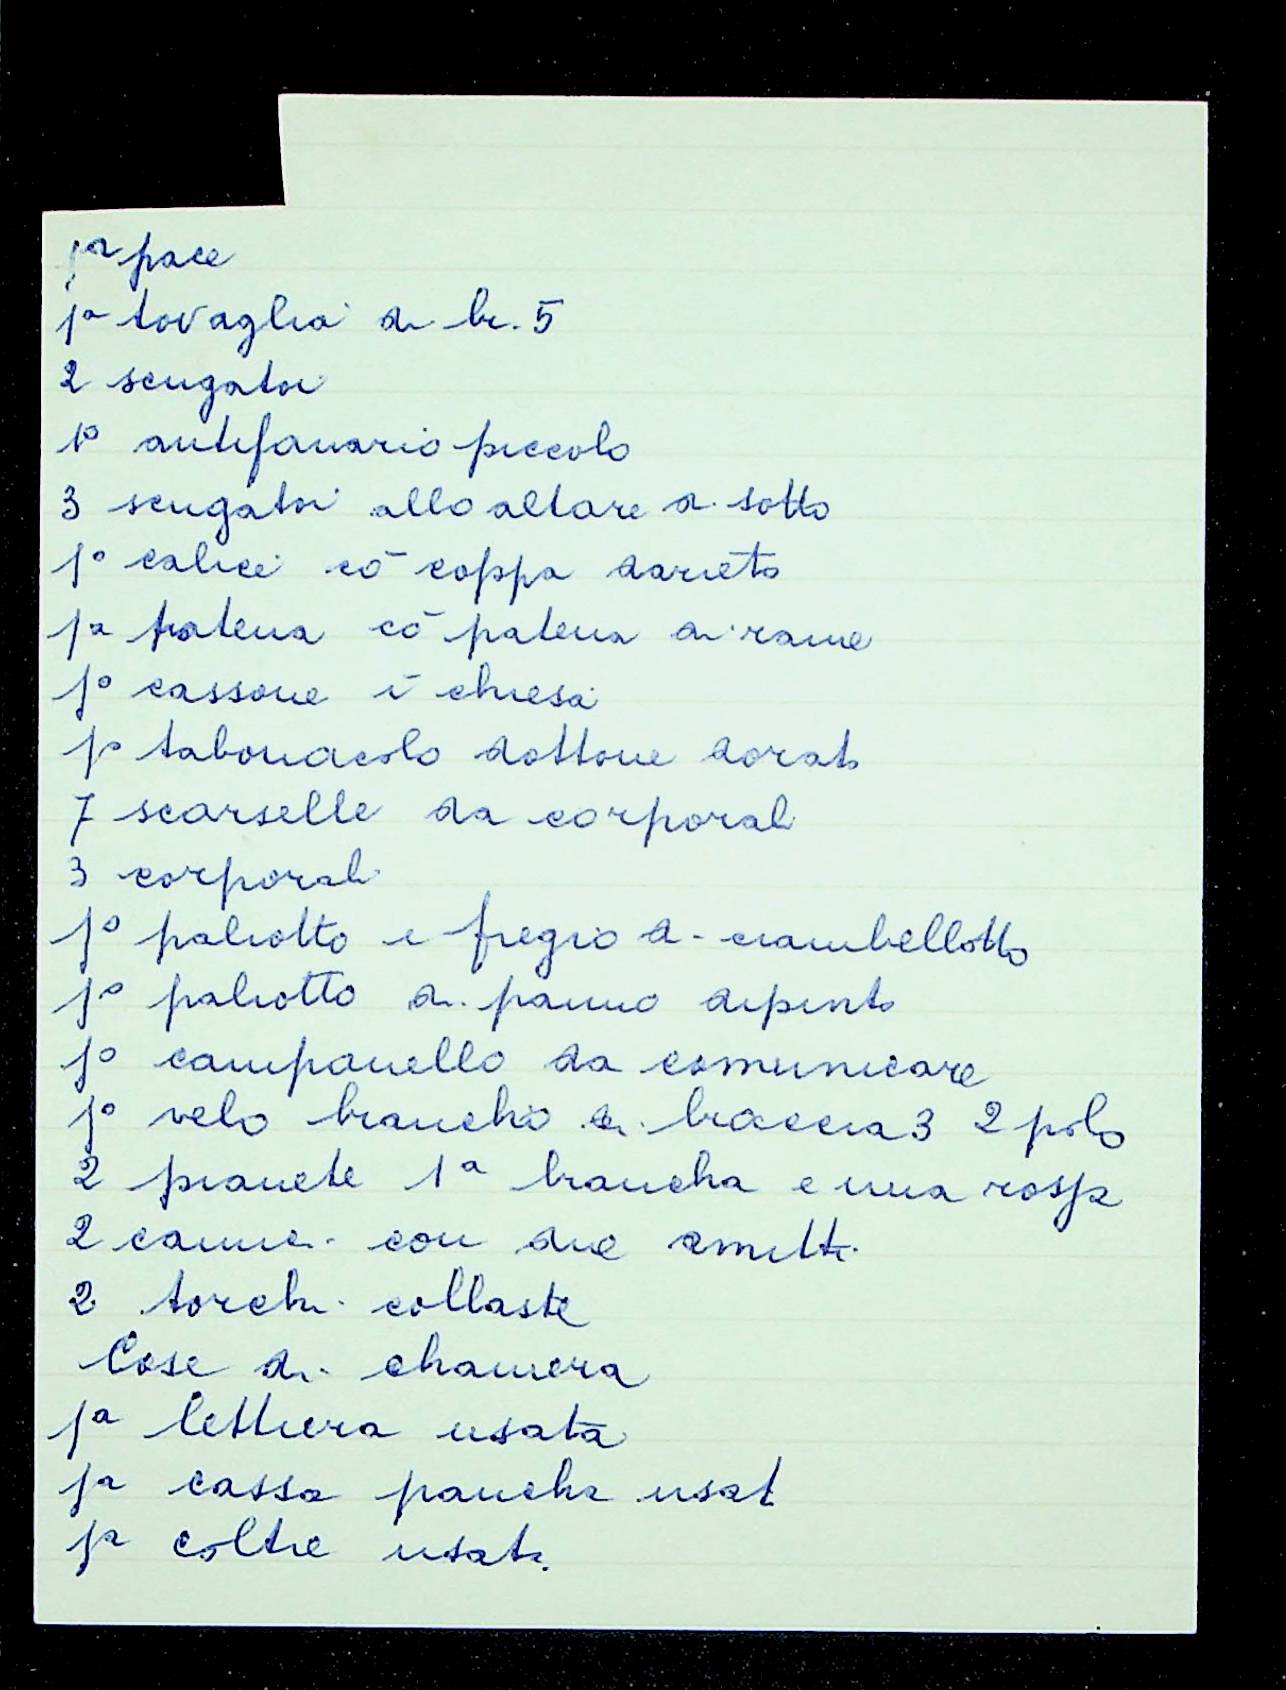 1ª pace
1ª tovaglia di br. 5
2 sciugatoi
1º antifanario piccolo
3 sciugatoi allo altare di sotto
1º calice cō coppa darieto
1ª patena cō patena di rame
1º cassone ī chiesa
1º tabernacolo dottone dorato
7 scarselle da corporali
3 corporali
1º paliotto e fregio di ciambellotto
1º paliotto di panno dipinto
1º campanello da comunicare
1º velo biancho di braccia 3 2 polo
2 pianete 1ª biancha e una rossa
2 camici con due amitti
2 torchi collaste
Cose di chamera
1ª lettiera usata
1ª cassa pancha usat
1ª coltre usata